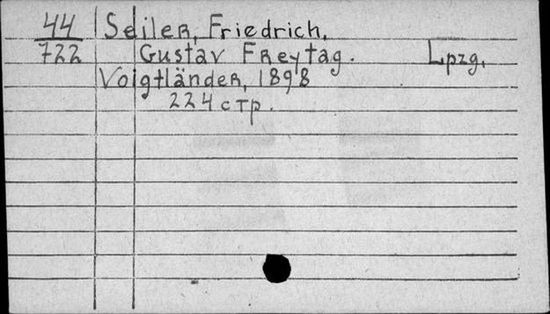 44 Seiler, Friedrich,
722 Gustav Freytag. Lpzg,
Voigtländer, 1898
224 стр.